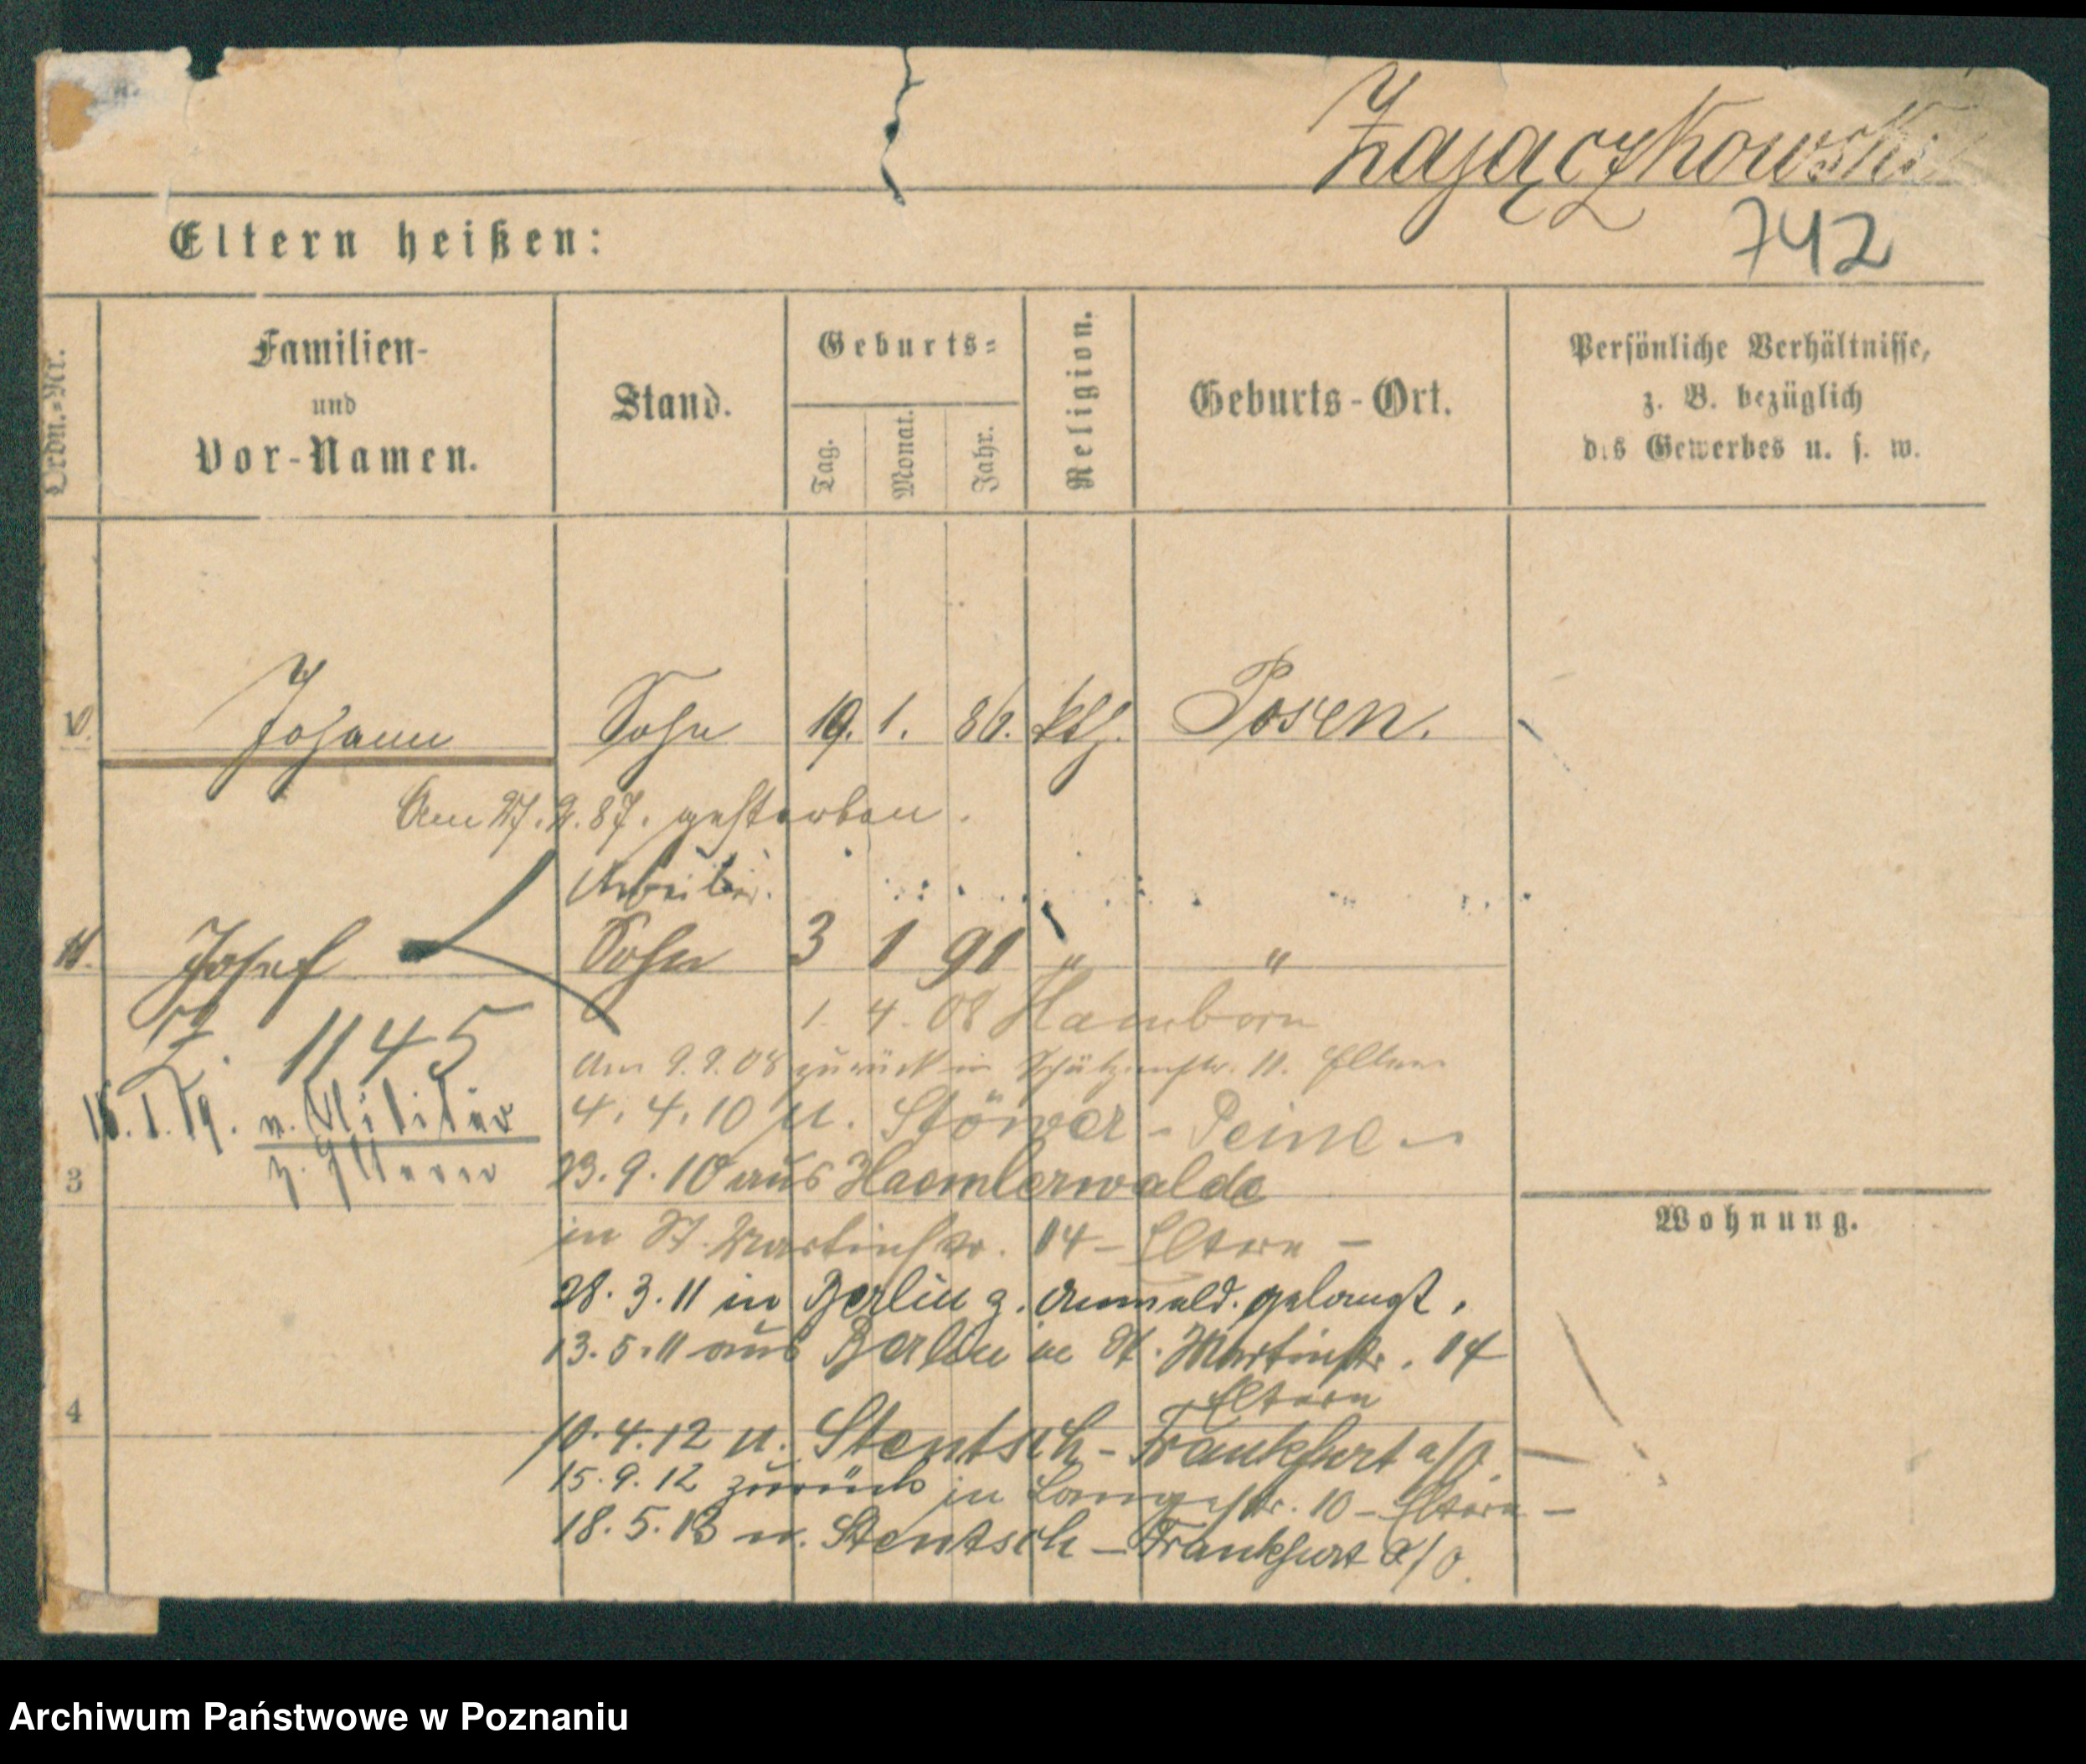 Zajączkowski
742
Eltern heißen:
Ordn.-Nr.
Familien-
und
Vor-Namen.
Stand.
Geburts-
Tag.
Monat.
Jahr.
Religion.
Geburts-Ort.
Persönliche Verhältnisse,
z. B. bezüglich
des Gewerbes u. s. w.
10. Johann Sohn 19. 1. 86. kth. Posen.
Am 27. 2. 87. gestorben.
Arbeiter.
11. Josef Sohn 3 1 91 " "
1. 4. 08 Hamborn
Z. 1145
Am 9.9.08 zurück in Schützenstr. 11. Eltern
4. 4. 10 n. Stöwer - Peine -
n. Militär
z. Eltern
3
23. 9. 10 aus Haemlerwalde
Wohnung.
in St. Martinstr. 14 - Eltern -
28. 3. 11 in Berlin z. Anmeld. gelangt.
13. 5. 11 aus Berlin in St. Martinstr. 14
Eltern
4
10. 4. 12 n. Stentsch - Frankfurt a/O.
15. 9. 12 zurück in Langestr. 10 - Eltern -
18. 5. 13 n. Stentsch - Frankfurt a/O.
Archiwum Państwowe w Poznaniu